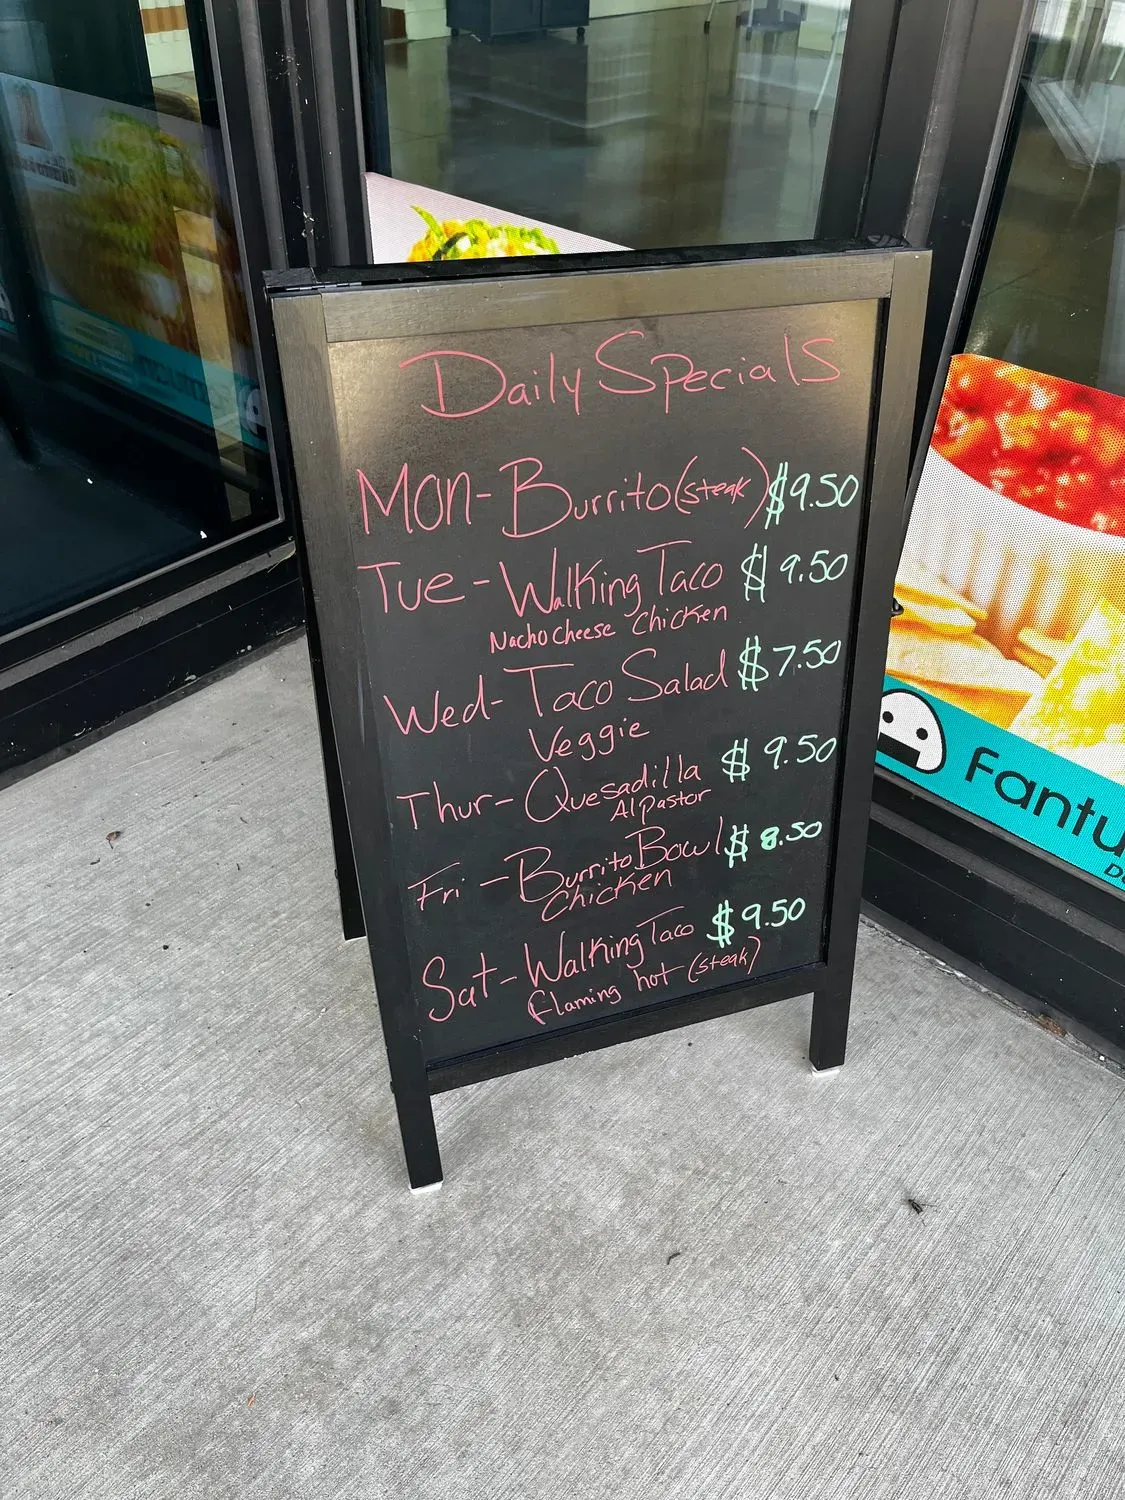 Daily Specials
Mon - Burrito (steak) $9.50
Tue - Walking Taco $9.50
Nacho cheese Chicken
Wed - Taco Salad $7.50
Veggie
Thur - Quesadilla $9.50
Al pastor
Fri - Burrito Bowl $8.50
Chicken
Sat - Walking Taco $9.50
flaming hot (steak)